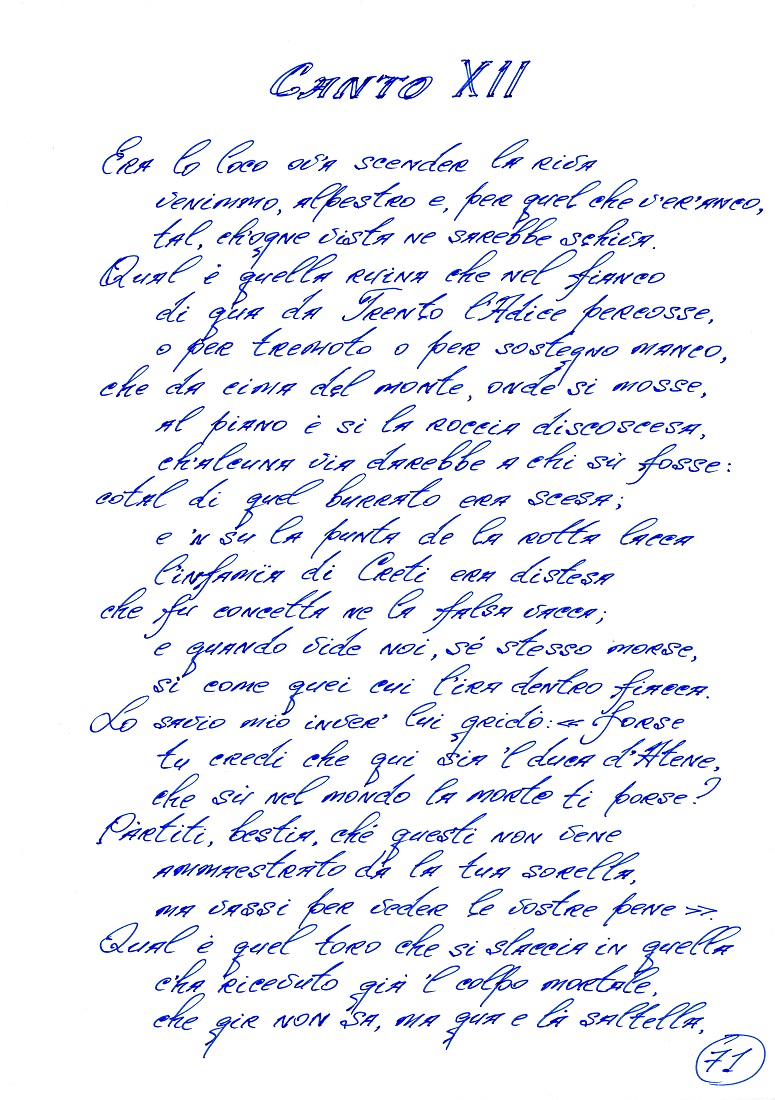 CANTO XII
Era lo loco ov'a scender la riva
venimmo, alpestro e, per quel che v'er'anco,
tal, ch'ogne vista ne sarebbe schiva.
Qual è quella ruina che nel fianco
di qua da Trento l'Adice percosse,
o per tremoto o per sostegno manco,
che da cima del monte, onde si mosse,
al piano è sì la roccia discoscesa,
ch'alcuna via darebbe a chi sù fosse:
cotal di quel burrato era scesa;
e 'n su la punta de la rotta lacca
l'infamïa di Creti era distesa
che fu concetta ne la falsa vacca;
e quando vide noi, sé stesso morse,
sì come quei cui l'ira dentro fiacca.
Lo savio mio inver' lui gridò: « Forse
tu credi che qui sia 'l duca d'Atene,
che sù nel mondo la morte ti porse?
Pàrtiti, bestia, ché questi non vene
ammaestrato da la tua sorella,
ma vassi per veder le vostre pene ».
Qual è quel toro che si slaccia in quella
c'ha ricevuto già 'l colpo mortale,
che gir non sa, ma qua e là saltella,
71